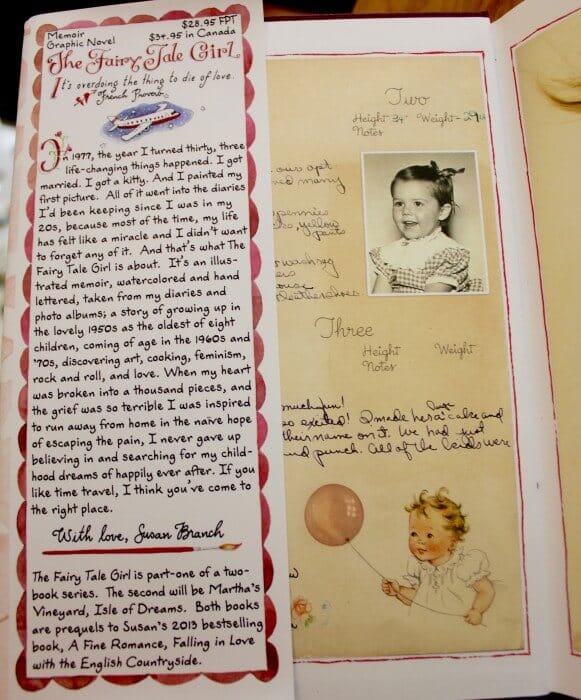 Memoir
$28.95 FPT
Graphic Novel
$34.95 in Canada
The Fairy Tale Girl
It's overdoing the thing to die of love.
French Proverb
In 1977, the year I turned thirty, three
life-changing things happened. I got
married. I got a kitty. And I painted my
first picture. All of it went into the diaries
I'd been keeping since I was in my
20s, because most of the time, my life
has felt like a miracle and I didn't want
to forget any of it. And that's what The
Fairy Tale Girl is about. It's an illus-
trated memoir, watercolored and hand
lettered, taken from my diaries and
photo albums; a story of growing up in
the lovely 1950s as the oldest of eight
children, coming of age in the 1960s and
'70s, discovering art, cooking, feminism,
rock and roll, and love. When my heart
was broken into a thousand pieces, and
the grief was so terrible I was inspired
to run away from home in the naive hope
of escaping the pain, I never gave up
believing in and searching for my child-
hood dreams of happily ever after. If you
like time travel, I think you've come to
the right place.
With love, Susan Branch
The Fairy Tale Girl is part-one of a two-
book series. The second will be Martha's
Vineyard, Isle of Dreams. Both books
are prequels to Susan's 2013 bestselling
book, A Fine Romance, Falling in Love
with the English Countyside.
Two
Height 34" Weight - 29
Notes
our apt
many
pennies
yellow
pants
leather shoes.
Three
Height Weight
Notes
much fun!
so excited! I made her a large cake and
their name on it. We had just
and punch. All of the kids were